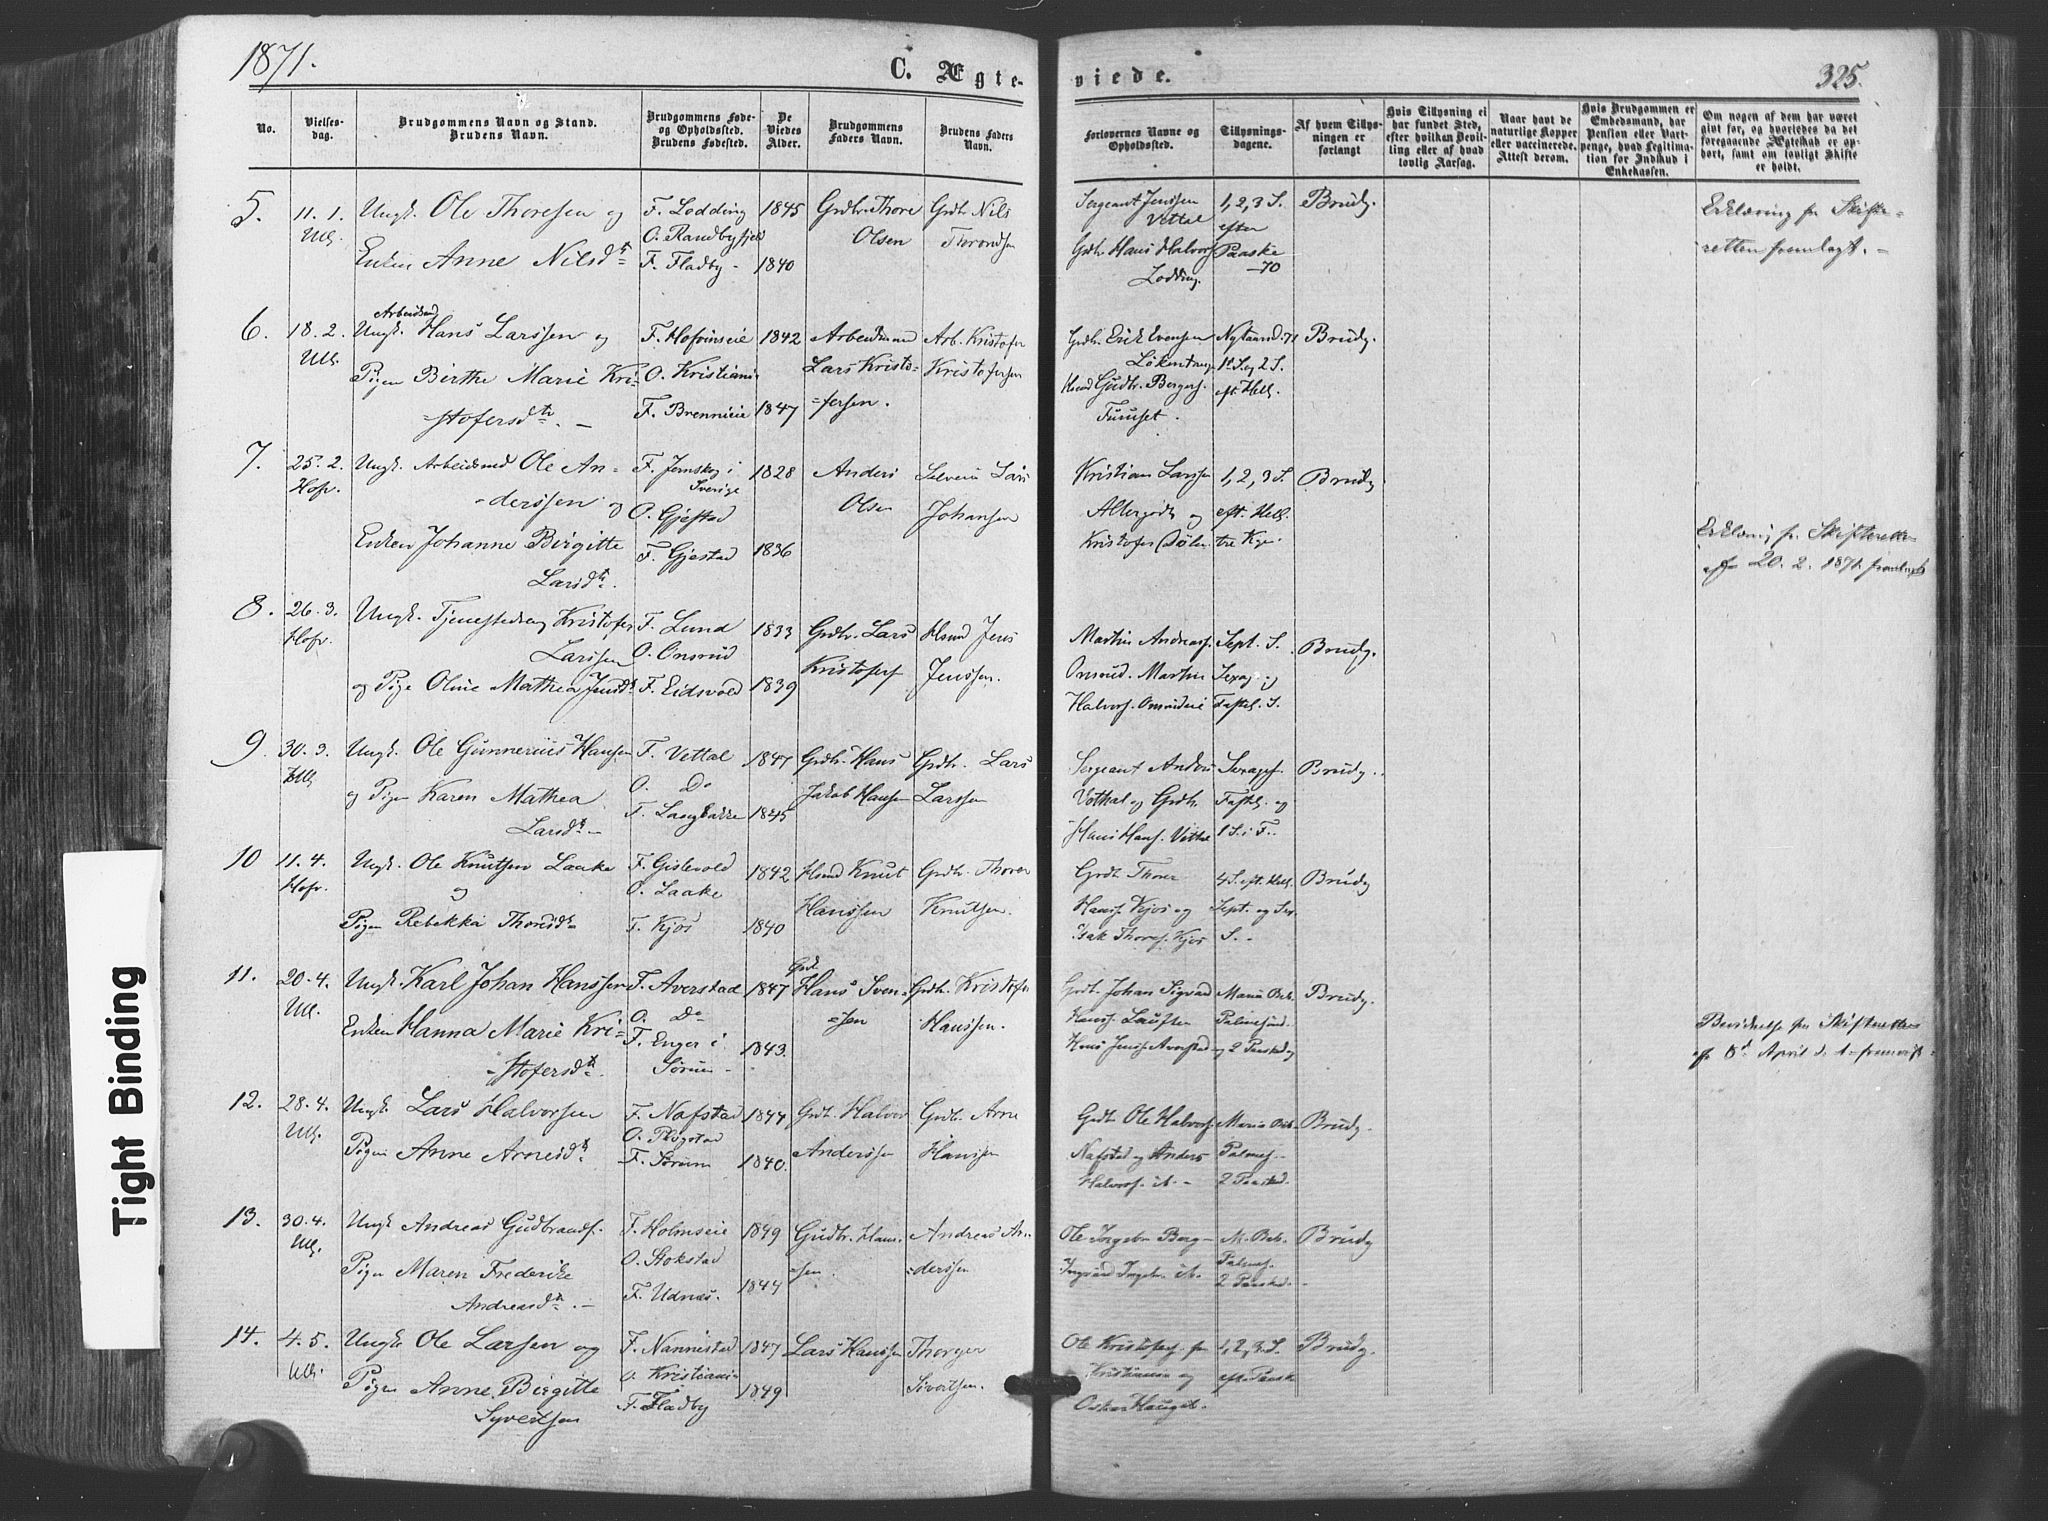 1871.
C. Ægte-
viede.
325.
No.
Vielses-
dag.
Brudgommens Navn og Stand.
Brudens Navn.
Brudgommens Føde-
og Opholdssted.
Brudens Fødested.
De
Viedes
Alder.
Brudgommens
Faders Navn.
Brudens Faders
Navn.
Forlovernes Navne og
Opholdssted.
Tillysnings-
dagene.
Af hvem Tillys-
ningen er
forlangt
Hvis Tillysning ei
har fundet Sted,
efter hvilken Bevil-
ling eller af hvad
lovlig Aarsag.
Naar havt de
naturlige Kopper
eller vaccinerede.
Attest derom.
Hvis Brudgommen er
Embedsmand, har
Pension eller Vart-
penge, hvad Legitima-
tion for Indskud i
Enkekassen.
Om nogen af dem har været
gift før, og hvorledes da det
foregaaende Ægteskab er op-
hørt, samt om lovligt Skifte
er holdt.
5.
11. 1.
Ull.
Ungk. Ole Thoresen og
Enken Anne Nilsdtr
F. Lodding
O. Randbyfjeld
F. Fladby -
1845
1840
Grdbr. Thore
Olsen
Grdbr. Nils
Throndsen
Sergeant Jenssen
Vettal
Grdbr. Hans Halvors.
Lodding.
1, 2, 3 S.
efter
Paaske
-70
Brudg.
Erklæring fr. Skifte-
retten fremlagt. -
6.
18. 2.
Ull.
Arbeidsmd
Ungk. Hans Larssen og
Pigen Birthe Marie Kri-
=stofersdtr. -
F. Hofrinseie
O. Kristiani-
F. Brennieie
1842
1847
Arbeidsmand
Lars Kristo-
=fersen.
Arb. Kristofer
Kristofersen
Grdbr. Erik Evensen
Løkentrøe
Hsmd Gudbr. Bergers.
Furuset.
Nytaarsd. 71
1 S. og 2 S.
eft. Hell.
Brudg.
7.
25. 2.
Hofr.
Ungk. Arbeidsmd Ole An-
=derssen og
Enken Johanne Birgitte
Larsdtr.
F. Jernskog i
Sverige
O. Gjestad
F. Gjestad
1828
1836
Anders
Olsen
Selveier Lars
Johansen
Kristian Larssen
og
Kristofer
1, 2, 3 S.
eft. Hell.
tre Kge.
Brudg
Erklæring fr. Skifteretten
af 20. 2. 1871 fremlagt
8.
26. 3.
Hofr.
Ungk. Tjenestedreng Kristofer
Larssen
og Pige Oline Mathea Jensdtr
F. Lund
O. Onsrud
F. Eidsvold
1833
1839
Grdbr. Lars
Kristofers
Hsmd Jens
Jenssen.
Martin Andreass.
Onsrud. Martin
Halvors. Onsrudeie
Sept. S.
Sexag. og
Fastel. S.
Brudg.
9.
30. 3.
Ull.
Ungk. Ole Gunnerius Hansen
og Pigen Karen Mathea
Larsdtr. -
F. Vettal
O. Do
F. Langbakke
1847
1845
Grdbr. Hans
Jakob Hansen
Grdbr. Lars
Larssen
Sergeant Anders
Vettal og Grdbr.
Hans Hans. Vettal
Sexages.
Fastel. og
1 S. i F.
Brudg.
10
11. 4.
Hofr.
Ungk. Ole Knutsen Laake
og
Pigen Rebekka Thoresdtr
F. Gislevold
O. Laake
F. Kjos
1842
1840
Hsmd Knut
Hanssen
Grdbr. Thorer
Knutsen.
Grdbr. Thorer
Hanss. Kjos og
Isak Thores. Kjos
4 S. eft. Hell.
Sept. og Sex.
S.
Brudg
11.
20. 4.
Ull.
Ungk. Karl Johan Hanssen
Enken Hanna Marie Kri-
=stofersdtr.
F. Averstad
O. Do
F. Enger i
Sørum -
1847
1843.
Grdb.
Hans Sven-
=sen
Grdbr. Kristofer
Hanssen.
Grdbr. Johan Sigvard
Hanss.
Hans Jenss. Averstad
Mariæ Beb.
Palmesønd.
og 2 Paasked.
Brudg.
Bevidnelse fra Skifteretten
af 8d April d. A. fremvist
12.
28. 4.
Ull.
Ungk. Lars Halvorsen
Pigen Anne Arnesdtr.
F. Nafstad
O. Plogstad
F. Sørum
1844
1840.
Grdbr. Halvor
Anderssen
Grdbr. Arne
Hanssen
Grdbr. Ole Halvors.
Nafstad og Anders
Halvors. ib. -
Maria Beb.
Palmes. -
2 Paasked.
Brudg.
13.
30. 4.
Ull.
Ungk Andreas Gudbrands.
Pigen Maren Frederike
Andreasdtr. -
F. Holmseie
O. Stokstad
F. Udnæs.
1849
1844
Gudbr. Han-
=sen.
Andreas An-
=derssen
Ole Ingebr. Berg -
Ingvard Ingebr. ib.
M. Beb.
Palmes.
2 Paasked.
Brudg
14.
4. 5.
Ull.
Ungk Ole Larsen og
Pigen Anne Birgitte
Syvertsen
F. Nannestad
O. Kristiani-
F. Fladby
1847
1849
Lars Hanssen
Thorger
Sivertsen.
Ole Kristofers. fra
Kristiania og
Oskar Hauget.
1, 2, 3. S.
eft. Paaske
Brudg.
Tight Binding